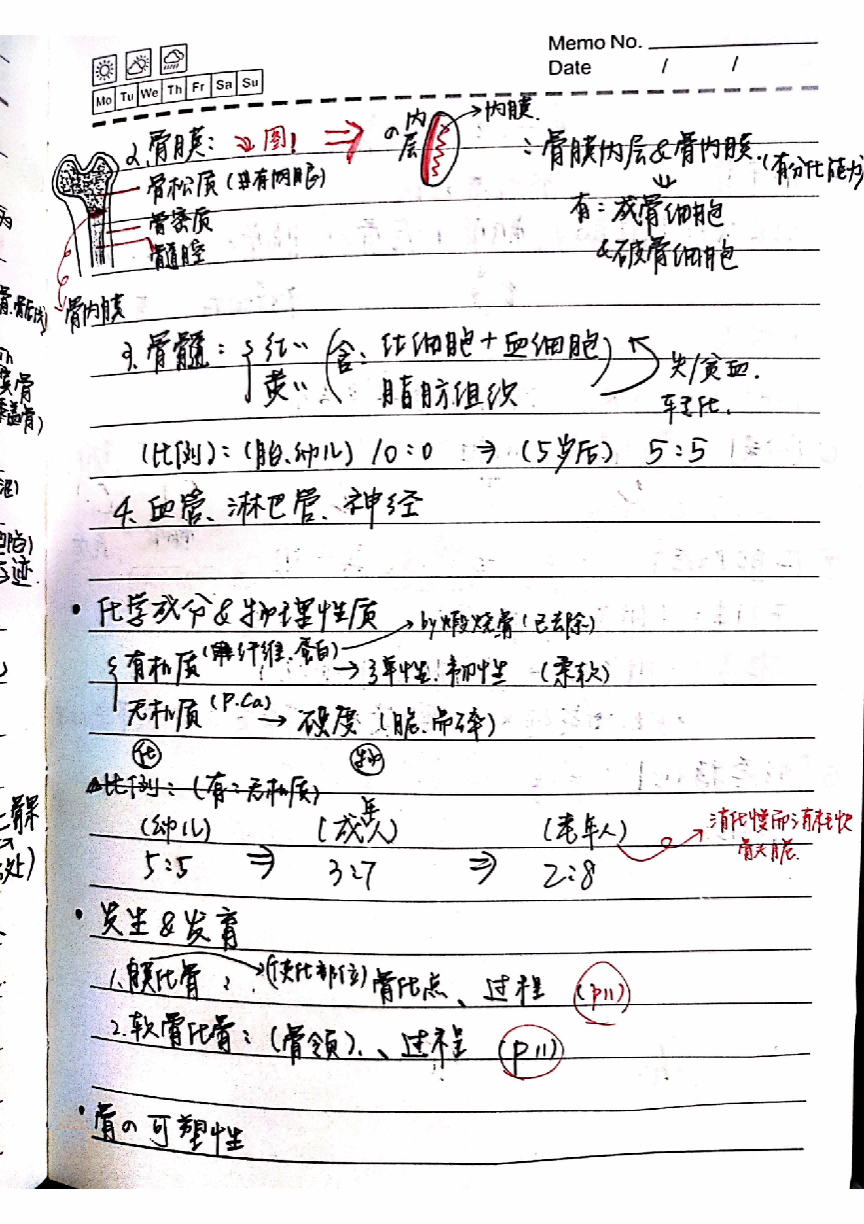 Memo No.
Date / /
Mo Tu We Th Fr Sa Su
2.骨膜: 图! ⇒ の内层 → 内膜.
∴骨膜内层&骨内膜.(有分化能力)
骨松质
骨密质
骨髓腔
骨内膜
有:成骨细胞
&破骨细胞
3.骨髓: 红〃 (含:
血细胞)
黄〃 脂肪组织
失/贫血.
转化.
(比例):(胎、幼儿) 10:0 ⇒ (5岁后) 5:5
4.血管、淋巴管、神经
• 化学成分&物理性质
有机质(纤维、蛋白) → 弹性!韧性 (柔软)
→ by煅烧骨(已去除)
无机质(P.Ca) → 硬度 (脆、而碎)
化 物
比例:(有:无机质)
(幼儿) (成年人) (老年人)
5:5 ⇒ 3:7 ⇒ 2:8
骨头脆.
• 发生&发育
1.膜化骨: 骨化点、过程 (P11)
2.软骨化骨:(骨领)、过程 (P11)
• 骨の可塑性